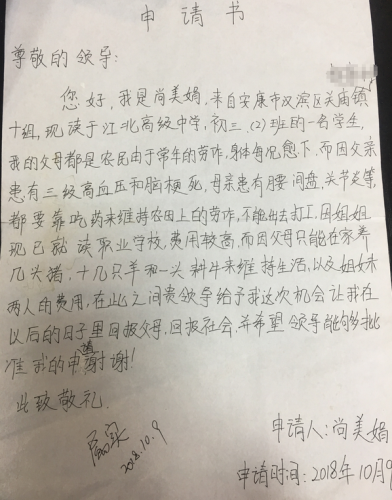 申请书
尊敬的领导:
您好,我是尚美娟,来自安康市汉滨区关庙镇
十组,现读于江北高级中学,初三(2)班的一名学生,
我的父母都是农民由于常年的劳作,身体每况愈下,而因父亲
患有三级高血压和脑梗死,母亲患有腰间盘、关节炎等,
都要靠吃药来维持农田上的劳作,不能出去打工,因姐姐
现已就读职业学校,费用较高,而因父母只能在家养
几头猪,十几只羊和一头耕牛来维持生活,以及姐妹
两人的费用,在此之间贵领导给予我这次机会让我在
以后的日子里回报父母,回报社会,并希望领导能够多批
准我的申请谢谢!
此致敬礼.
属实
2018.10.9
申请人:尚美娟
申请时间:2018年10月9